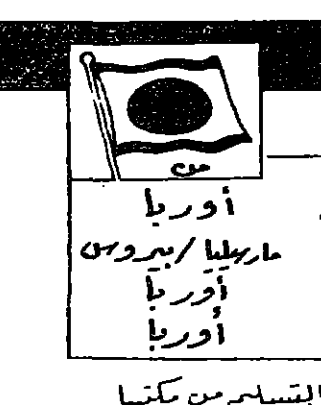 من
أوربا
مارسيليا / بيروس
أوربا
أوربا
التسليم من مكتبنا